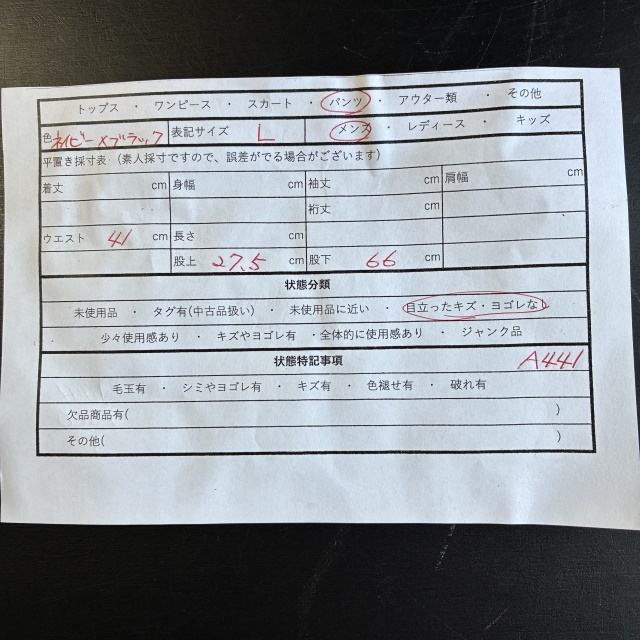 トップス ・ ワンピース ・ スカート ・ パンツ ・ アウター類 ・ その他
色 ネイビー×ブラック 表記サイズ L メンズ ・ レディース ・ キッズ
平置き採寸表 (素人採寸ですので、誤差がでる場合がございます)
着丈 cm 身幅 cm 袖丈 cm 肩幅 cm
裄丈 cm
ウエスト 41 cm 長さ cm
股上 27.5 cm 股下 66 cm
状態分類
未使用品 ・ タグ有(中古品扱い) ・ 未使用に近い ・ 目立ったキズ・ヨゴレなし
少々使用感あり ・ キズやヨゴレ有 ・全体的に使用感あり ・ ジャンク品
状態特記事項 A441
毛玉有 ・ シミやヨゴレ有 ・ キズ有 ・ 色褪せ有 ・ 破れ有
欠品商品有( )
その他( )